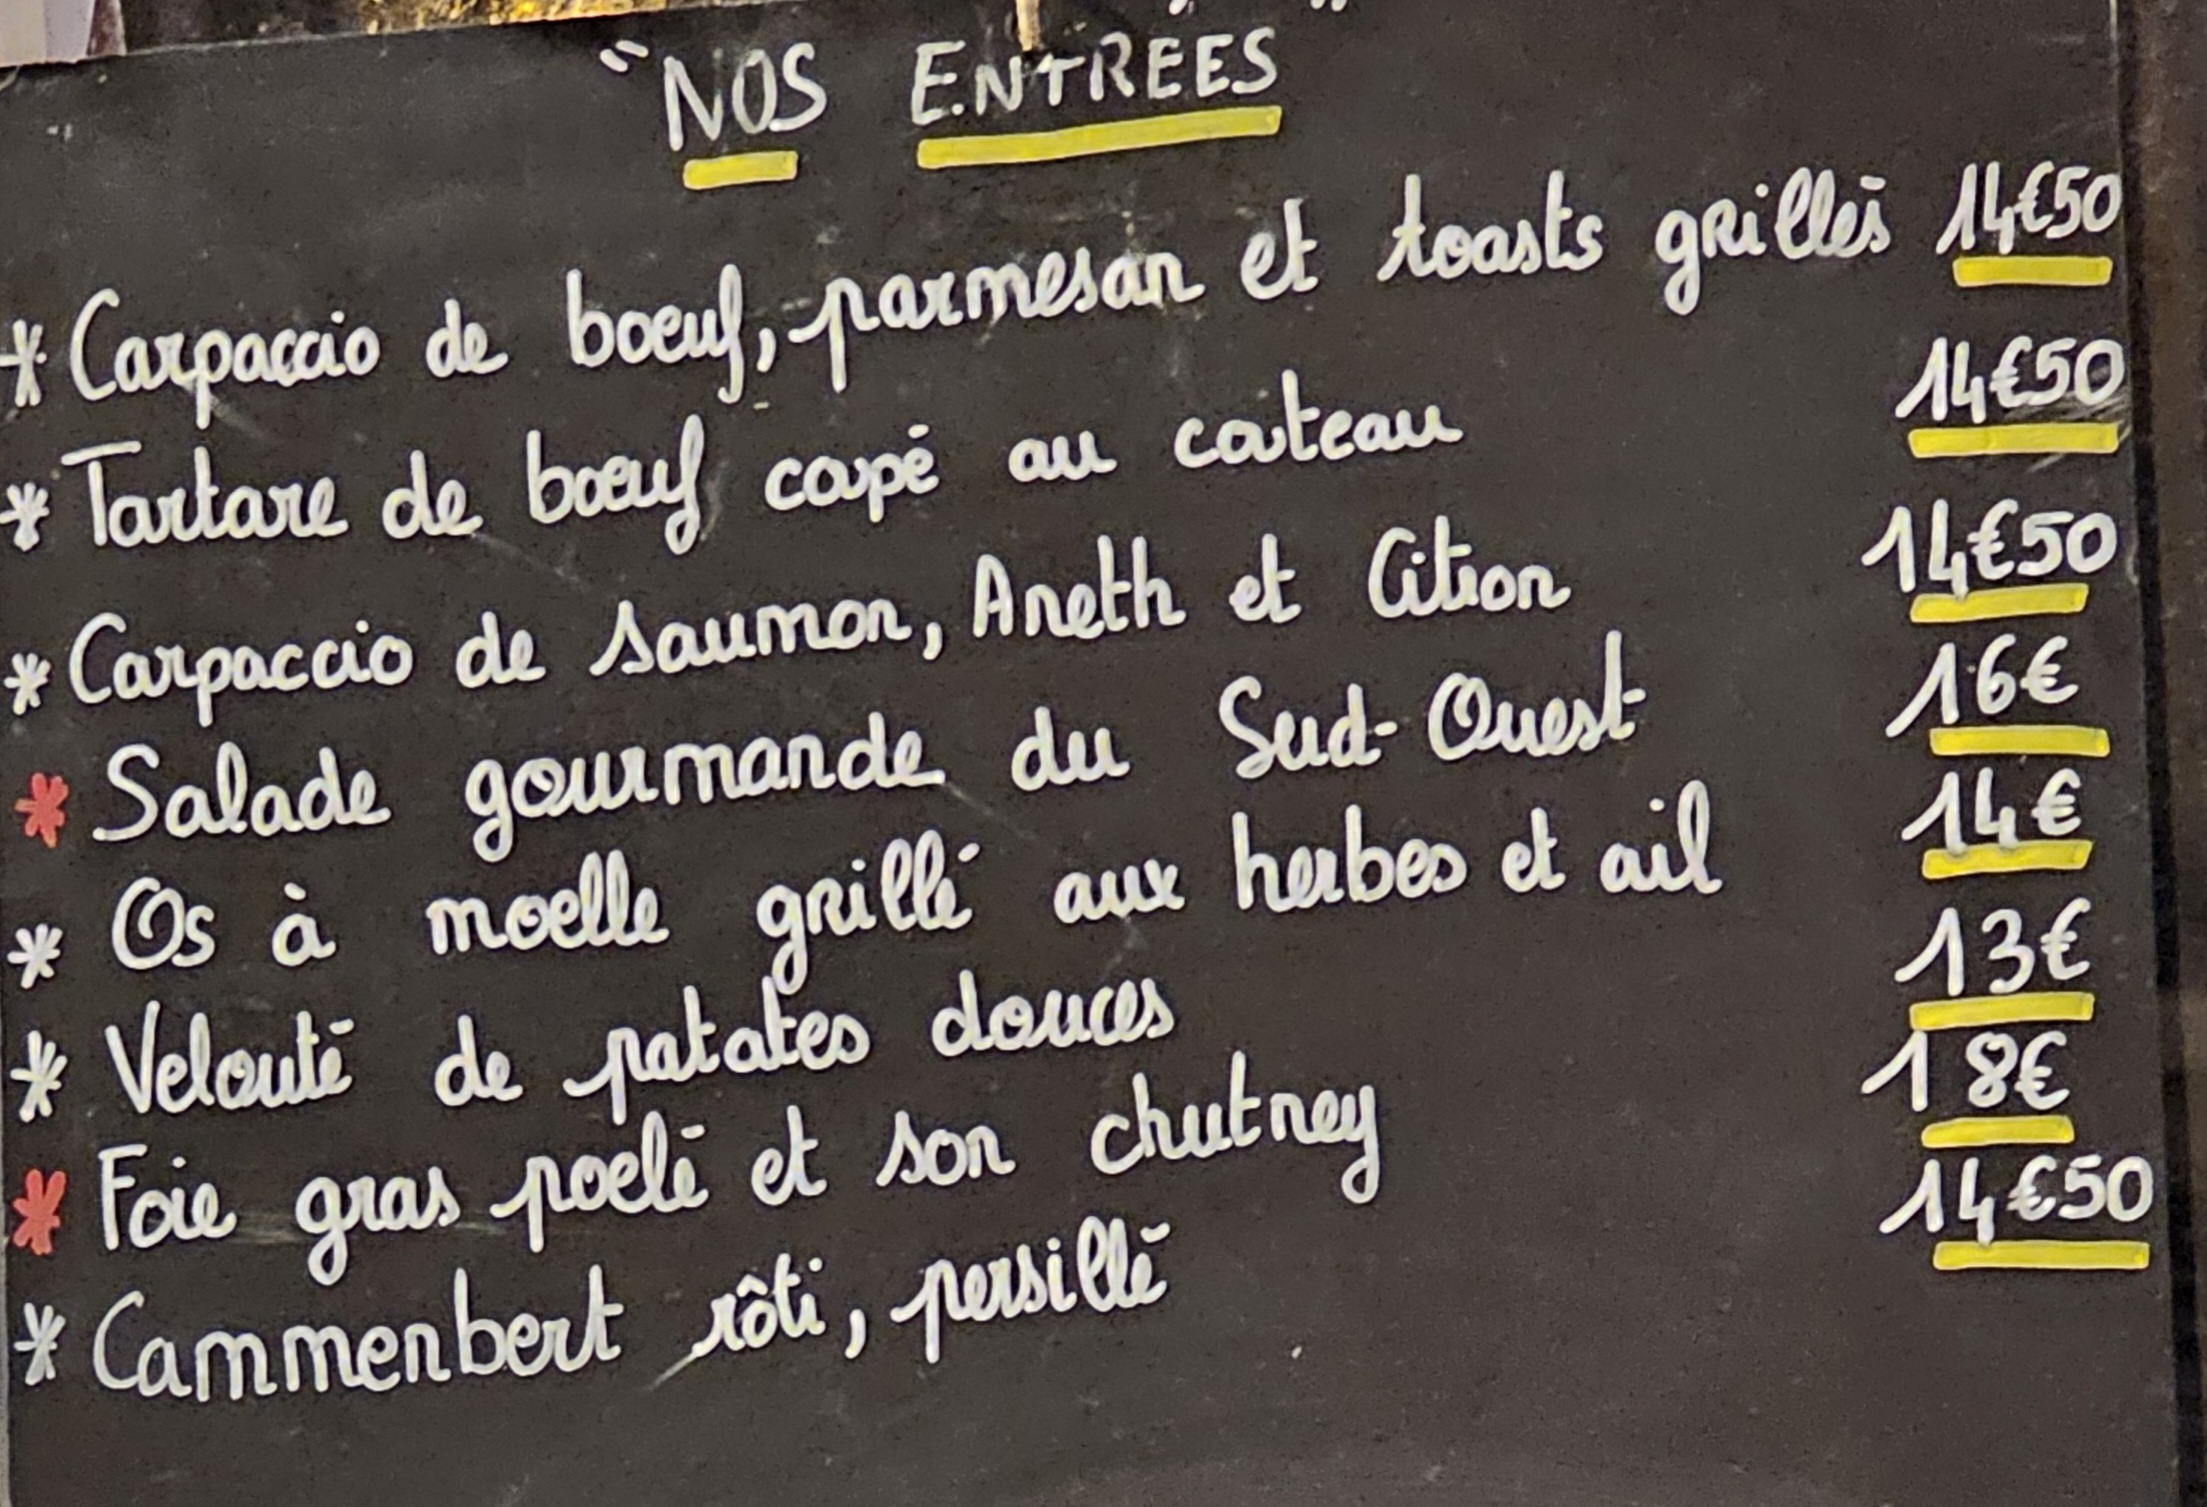 "NOS ENTRÉES"
* Carpaccio de boeuf, parmesan et toasts grillés 14€50
* Tartare de boeuf coupé au couteau 14€50
* Carpaccio de saumon, Aneth et Citron 14€50
* Salade gourmande du Sud-Ouest 16€
* Os à moelle grillé aux herbes et ail 14€
* Velouté de patates douces 13€
* Foie gras poelé et son chutney 18€
* Cammenbert rôti, persillé 14€50